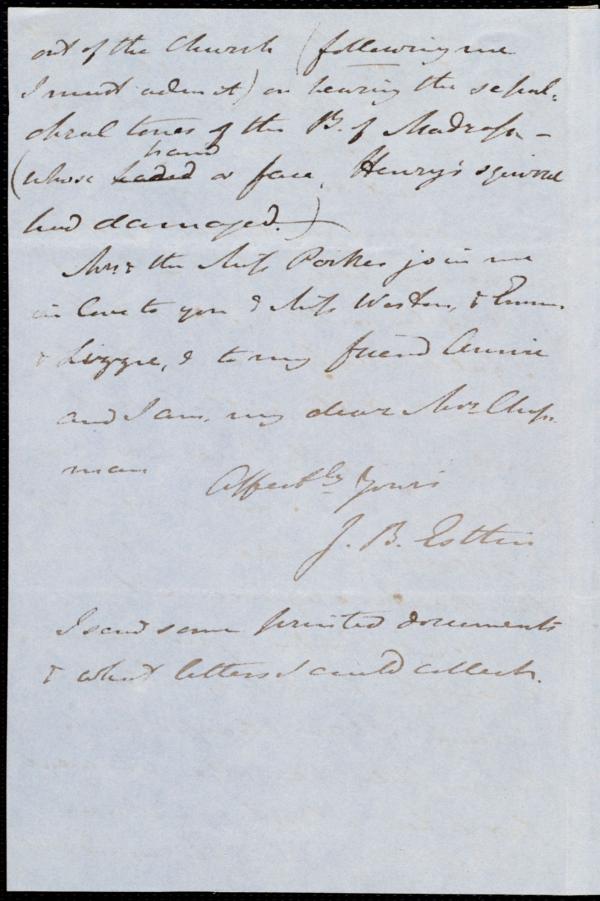 out of the Church (following me
I must admit) on hearing the sepul-
chral tones of the B. of Madras —
hand
(whose haded or face, Henry's squirrel
had damaged.)
Mrs & the Miss Parkes join me
in love to you & Miss Weston, & Emma
& Lizzie, & to my friend Annie
and I am, my dear Mrs Chap-
man
Affectly Yours
J. B. Estlin
I send some printed documents
& what letters I could collect.